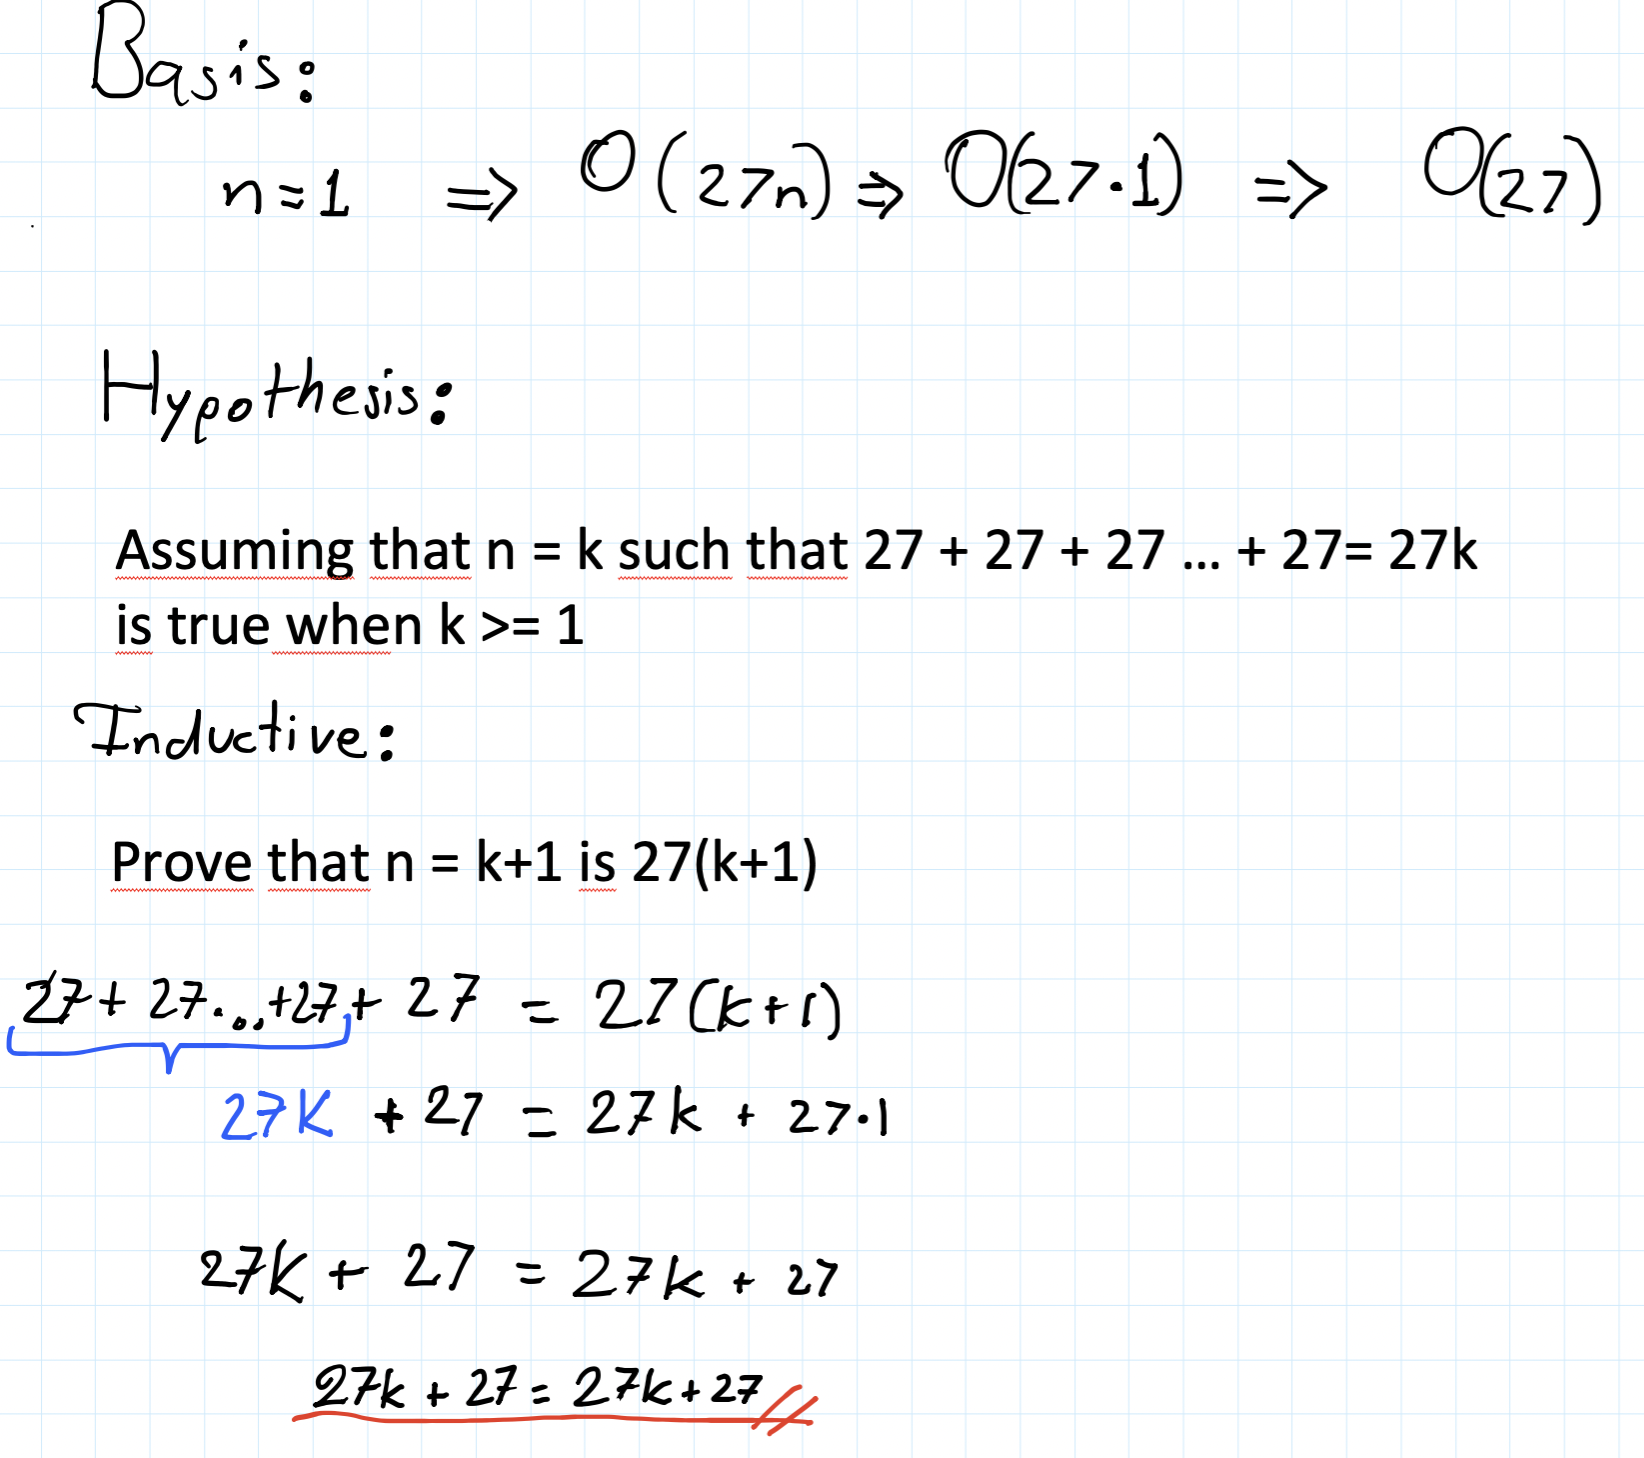 Basis:
n = 1 ⇒ O(27n) ⇒ O(27·1) ⇒ O(27)
Hypothesis:
Assuming that n = k such that 27 + 27 + 27 ... + 27= 27k
is true when k >= 1
Inductive:
Prove that n = k+1 is 27(k+1)
27 + 27...+27 + 27 = 27(k+1)
27K + 27 = 27k + 27·1
27K + 27 = 27k + 27
27k + 27 = 27k + 27